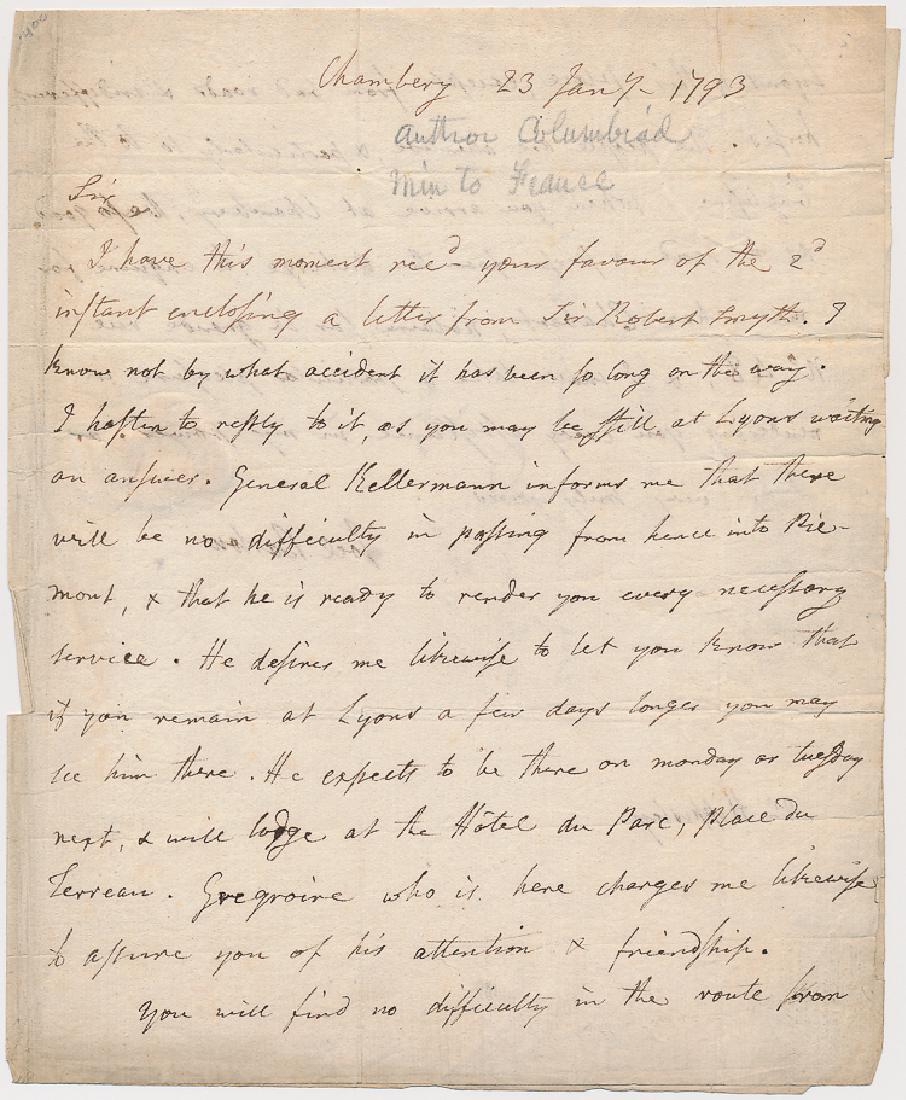 Chambery 23 Jany- 1793
author Columbiad
Min to France
Sir
I have this moment recd- your favour of the 2d
instant enclosing a letter from Sir Robert Smyth. I
know not by what accident it has been so long on the way.
I hasten to reply to it, as you may be still at Lyons waiting
an answer. General Kellermann informs me that there
will be no difficulty in passing from hence into Pie-
mont, & that he is ready to render you every necessary
service. He desires me likewise to let you know that
if you remain at Lyons a few days longer you may
see him there. He expects to be there on monday or tuesday
next, & will lodge at the Hôtel du Parc, Place du
Terreau. Gregroire who is here charges me likewise
to assure you of his attention & friendship.
You will find no difficulty in the route from